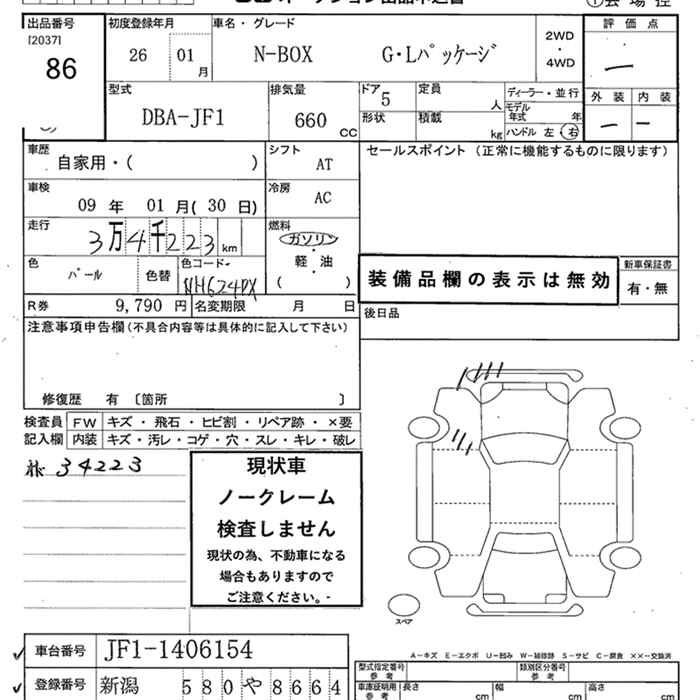 オークション出品申込書
会場控
出品番号 初度登録年月 車名・グレード 評価点
[2037]
86
26 01月 N-BOX G・Lパッケージ 2WD・4WD ー
型式 排気量 ドア 5 定員 人 ディーラー・並行 外装 内装
DBA-JF1 660 CC 形状 積載 kg モデル年式 年 ハンドル 左・右 ー ー
車歴 シフト セールスポイント(正常に機能するものに限ります)
自家用・( ) AT
車検 冷房
09年 01月(30日) AC
走行 燃料
3万4千223km ガソリン
軽・油
( )
色 パール 色替 色コード NH624PX
装備品欄の表示は無効
新車保証書
有・無
R券 9,790円 名変期限 月 日
後日品
注意事項申告欄(不具合内容等は具体的に記入して下さい)
修復歴 有 〔箇所 〕
検査員 FW キズ・飛石・ヒビ割・リペア跡・×要
記入欄 内装 キズ・汚レ・コゲ・穴・スレ・キレ・破レ
34223
現状車
ノークレーム
検査しません
現状の為、不動車になる
場合もありますので
ご注意ください。-
スペア
A-キズ E-エクボ U-凹み W-補修跡 S-サビ C-腐食 ××-交換済
車台番号 JF1-1406154
型式指定番号 参考 類別区分番号 参考
登録番号 新潟 580や8664
車庫証明用 参考 長さ cm 幅 cm 高さ cm